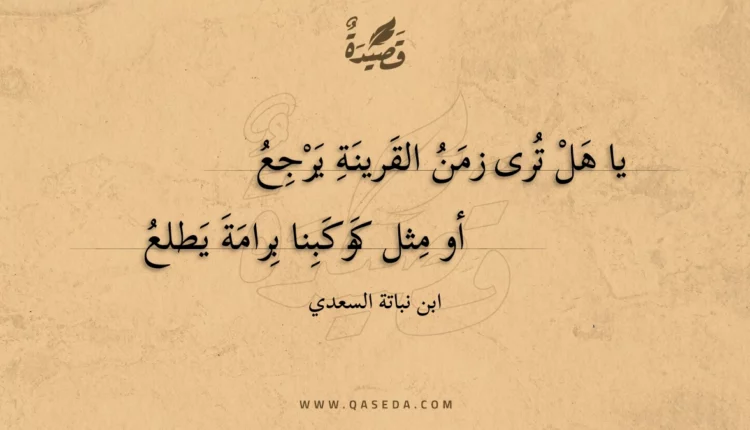 قَصِيدَةٌ
يا هَلْ تُرى زمَنُ القَرينَةِ يَرْجِعُ
أو مِثل كَوكَبِنا بِرامَةَ يَطلعُ
ابن نباتة السعدي
WWW.QASEDA.COM